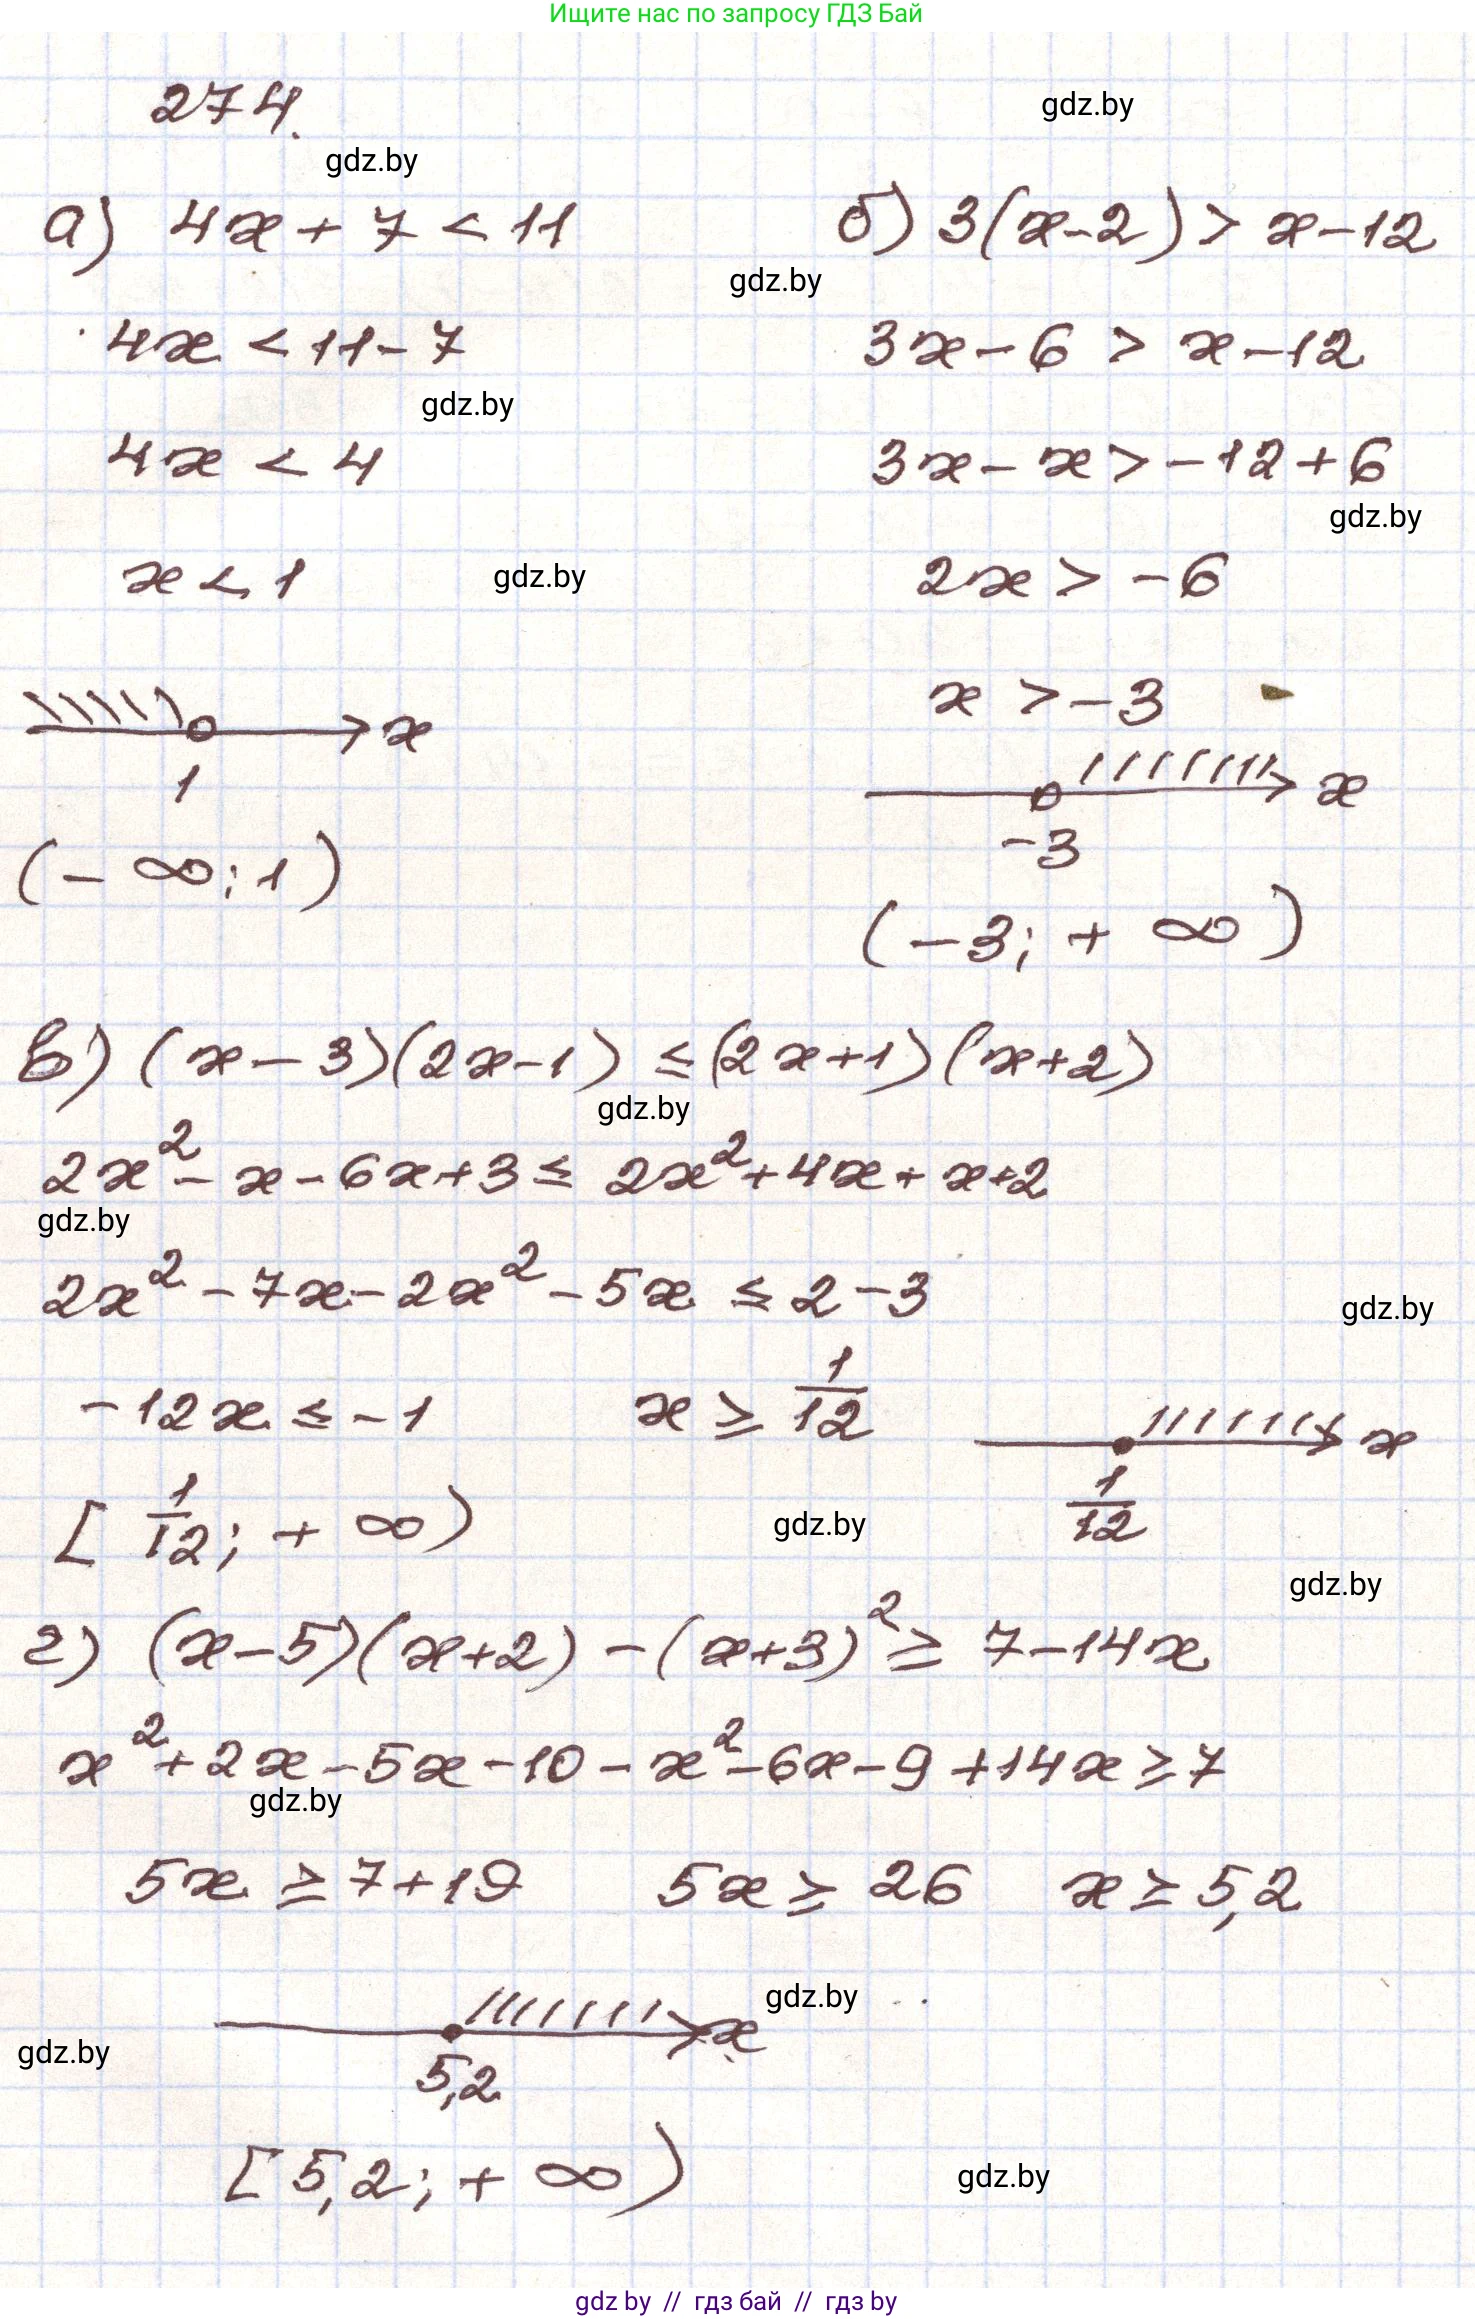 Ищите нас по запросу ГДЗ Бай
274.
gdz.by
gdz.by
а) 4x + 7 < 11
б) 3(x-2) > x-12
gdz.by
4x < 11-7
3x-6 > x-12
gdz.by
4x < 4
3x-x>-12+6
gdz.by
x < 1
gdz.by
2x > -6
x > -3
x
1
x
-3
(-∞; 1)
(-3; +∞)
в) (x-3)(2x-1) ≤ (2x+1)(x+2)
gdz.by
2x²-x-6x+3 ≤ 2x²+4x+x+2
gdz.by
2x²-7x-2x²-5x ≤ 2-3
gdz.by
-12x ≤ -1
x ≥ 1/12
x
1/12
[1/12; +∞)
gdz.by
gdz.by
г) (x-5)(x+2)-(x+3)² ≥ 7-14x
x²+2x-5x-10-x²-6x-9+14x ≥ 7
gdz.by
5x ≥ 7+19 5x ≥ 26 x ≥ 5,2
gdz.by
x
gdz.by
5,2
[5,2; +∞)
gdz.by
gdz by // гдз бай // гдз by